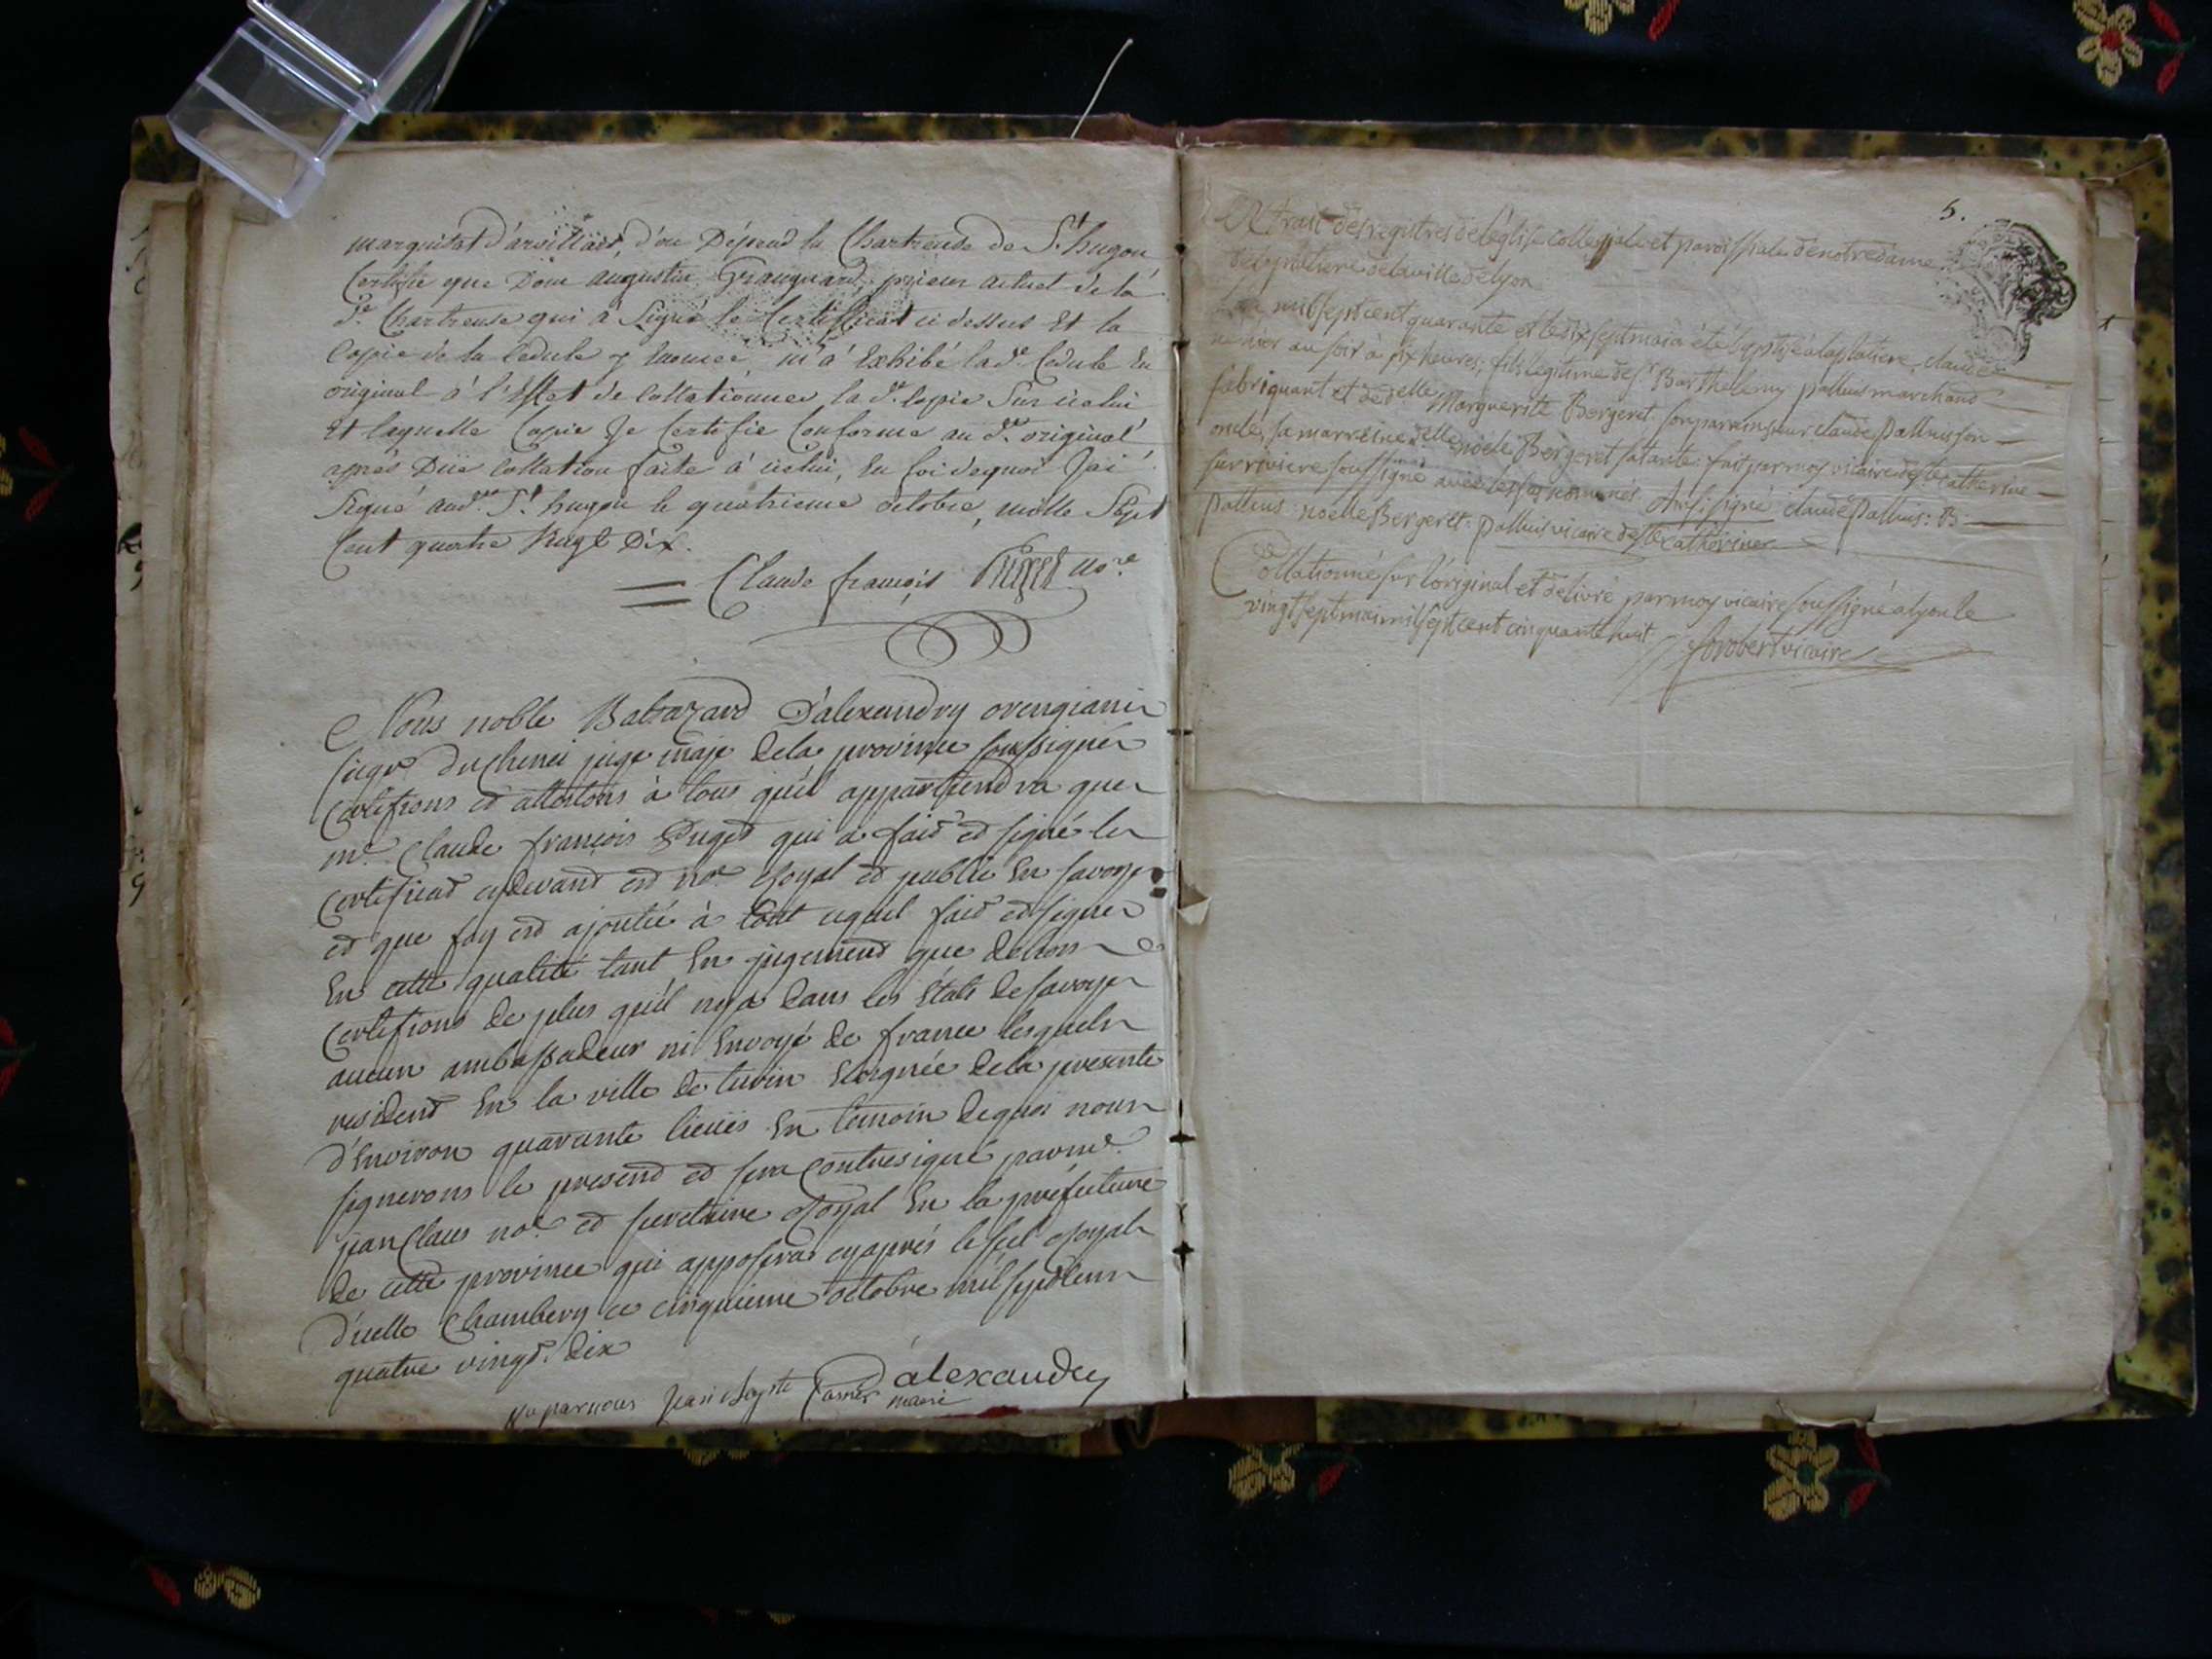 marquisat d'arvillard, d'ou Dépend la Chartreuse de St. hugon
Certifie que Dom augustin prieur actuel de la
de. Chartreuse qui à Signé le Certificat ci dessus Et la
Copie de la Cedule y Enoncée, m'a Exhibé lad.e Cedule En
original à l'Effet de Collationner la de. Copie Sur icelui
Et laquelle Copie Je Certifie Conforme au dt. original
aprés Düe Collation faite à icelui, En foi dequoi Jai
Signé aud. St. hugon le quatrieme octobre, mille Sept
Cent quatre Vingt Dix.
Claude françois Puget no.re
Nous noble Baltazard D'alexandry orengiani
juge maje dela province soussigné
Certifions et attestons à tous qu'il appartiendra que
me. Claude françois Puget qui a fait et signé le
Certificat cydevant est no.e Royal et public En savoye
et que foy est ajoutée à tout cequil fait et signe
En cette qualité tant En jugement que dehors
Certifions de plus qu'il ny a dans les états de savoye
aucun ambassadeur ni Envoyé de france lesquels
resident En la ville de turin Eloignée dela presente
d'Environ quarante lieües En temoin dequoi nous
signerons le present et sera Contresigné par me.
jean Claus no.e et secretaire Royal En la préfecture
de cette province qui apposera cy aprés le scel Royal
d'icelle Chambery ce cinquieme octobre mil sept cent
quatre vingt. dix
D'alexandry
Vu par nous Jean Bapte maire
5.
Extrait des registres de l'église collegiale et paroissiale de notre dame
de la platiere de la ville de lyon
mil sept cent quarante et le dix sept mai a été baptisé a la platiere, claude
né hier au soir à six heures, fils legitime de sr. Barthelemy palluis marchand
fabriquant et de delle Marguerite Bergeret son parrain sieur claude Palluis son
oncle, sa marreine delle noele Bergeret sa tante: fait par moy vicaire de ste catherine
sur riviere soussigné avec les susnommés. Ainsi signé claude Palluis: B:
Palluis: noelle Bergeret: palluis vicaire de ste catherine
Collationné sur l'original et délivré par moy vicaire soussigné a lyon le
vingt sept mai mil sept cent cinquante huit
vicaire